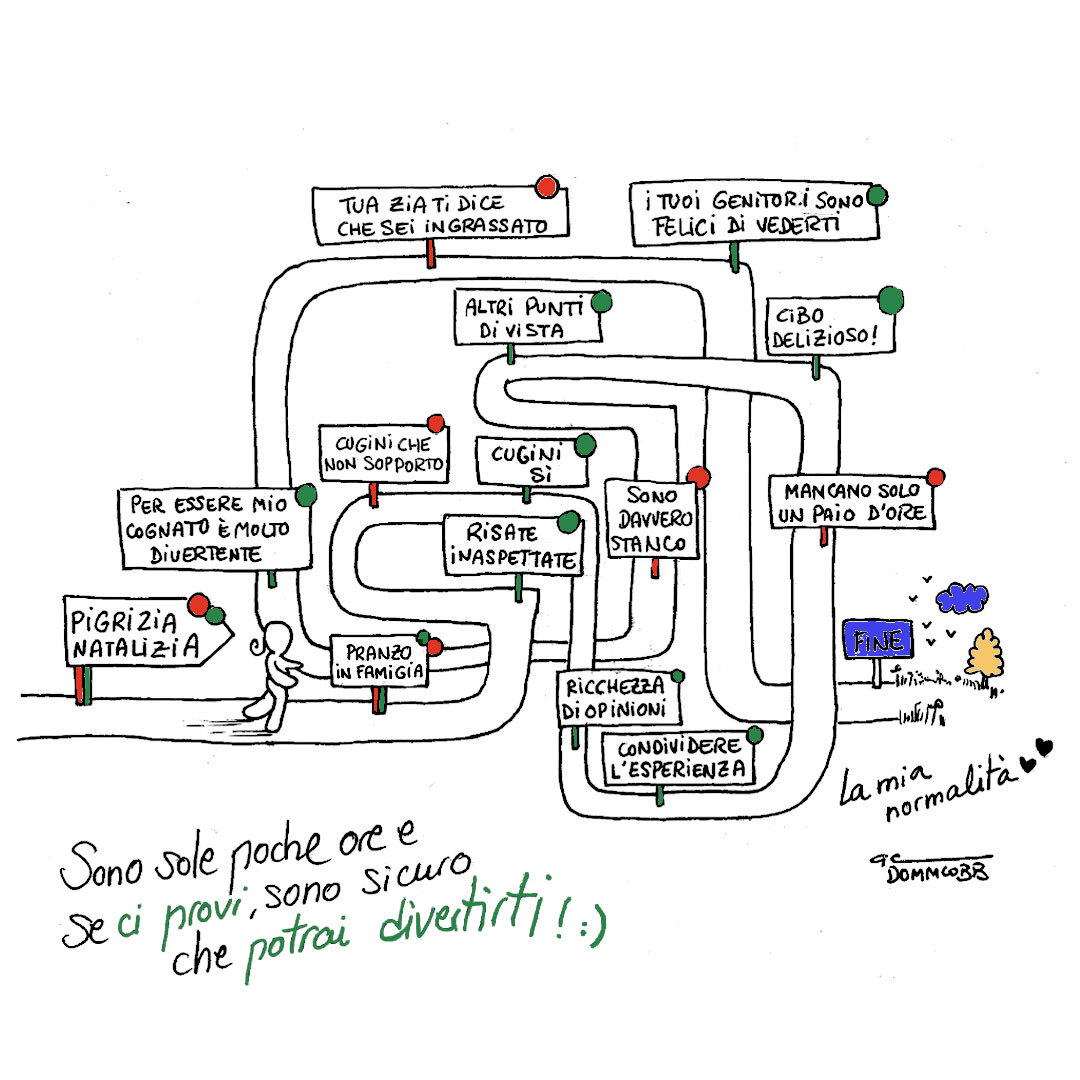 TUA ZIA TI DICE
CHE SEI INGRASSATO
I TUOI GENITOR.I SONO
FELICI DI VEDERTI
ALTRI PUNTI
DI VISTA
CIBO
DELIZIOSO!
CUGINI CHE
NON SOPPORTO
CUGINI
SÌ
SONO
DAVVERO
STANCO
MANCANO SOLO
UN PAIO D'ORE
PER ESSERE MIO
COGNATO È MOLTO
DIVERTENTE
RISATE
INASPETTATE
PIGRIZIA
NATALIZIA
PRANZO
IN FAMIGIA
FINE
RICCHEZZA
DI OPINIONI
CONDIVIDERE
L'ESPERIENZA
La mia
normalità
DOMMCOBB
Sono sole poche ore e
se ci provi, sono sicuro
che potrai divertirti! :)